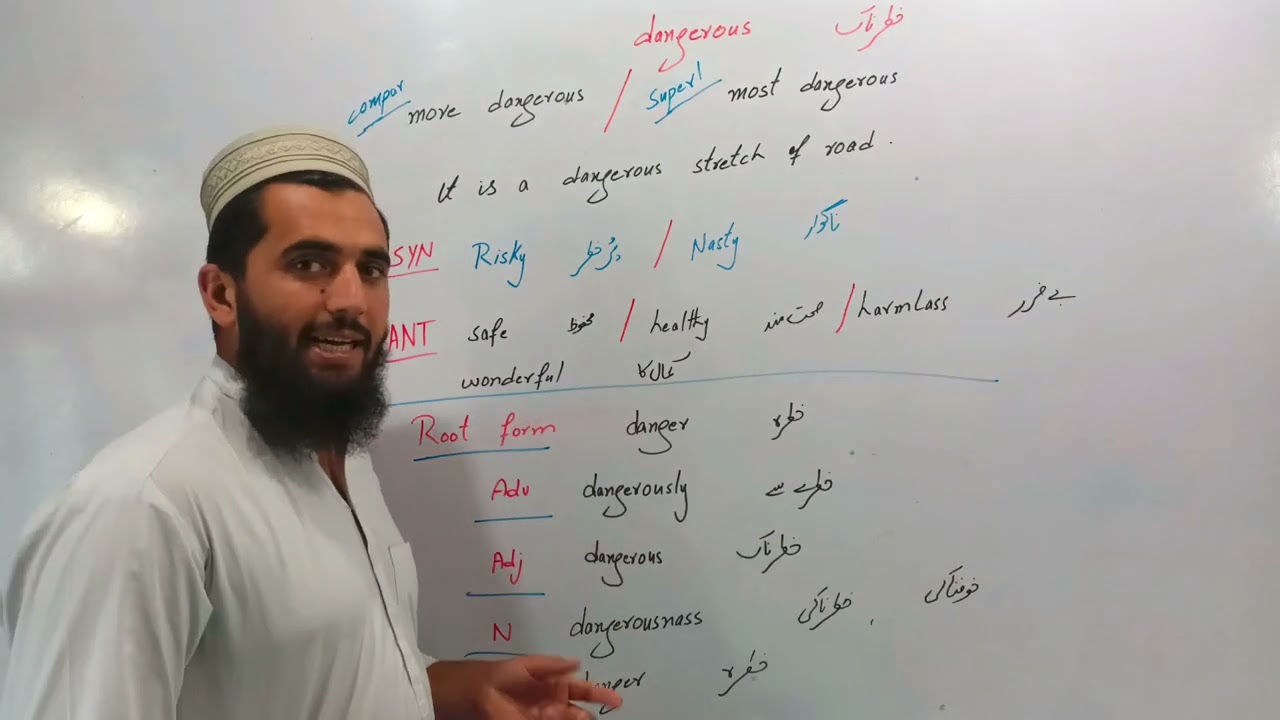 dangerous خطرناک
compar more dangerous / superl most dangerous
It is a dangerous stretch of road .
SYN Risky پُرخطر / Nasty ناگوار
ANT safe محفوظ / healthy صحت مند / harmlass بے ضرر
wonderful کمال کا
Root form danger خطرہ
Adv dangerously خطرے سے
Adj dangerous خطرناک
N dangerousnass خطرناکی , خوفناکی
danger خطرہ